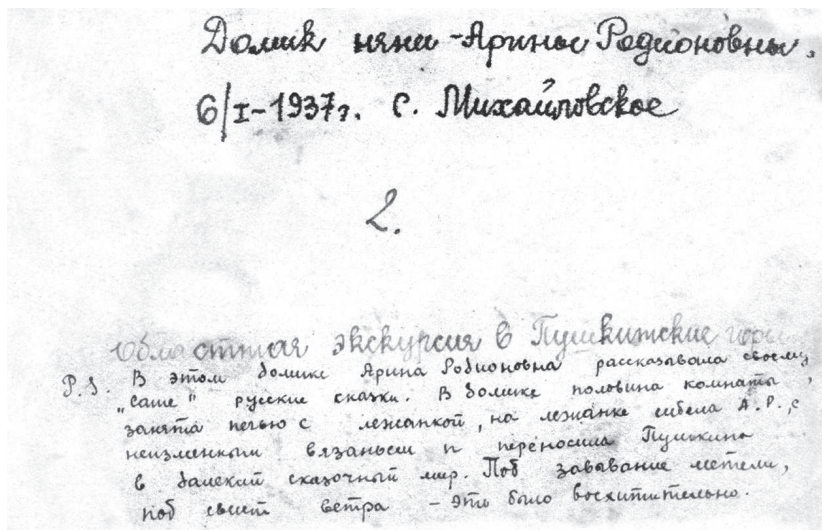 Домик няни - Арины Родионовны.
6/I-1937г. с. Михайловское
2.
Областная экскурсия в Пушкинские горы
P.S. В этом домике Арина Родионовна рассказывала своему
"Саше" русские сказки. В домике половина комнаты
занята печью с лежанкой, на лежанке сидела А.Р., с
неизменным вязаньем и переносила Пушкина
в далекий сказочный мир. Под завывание метели,
под свист ветра - это было восхитительно.